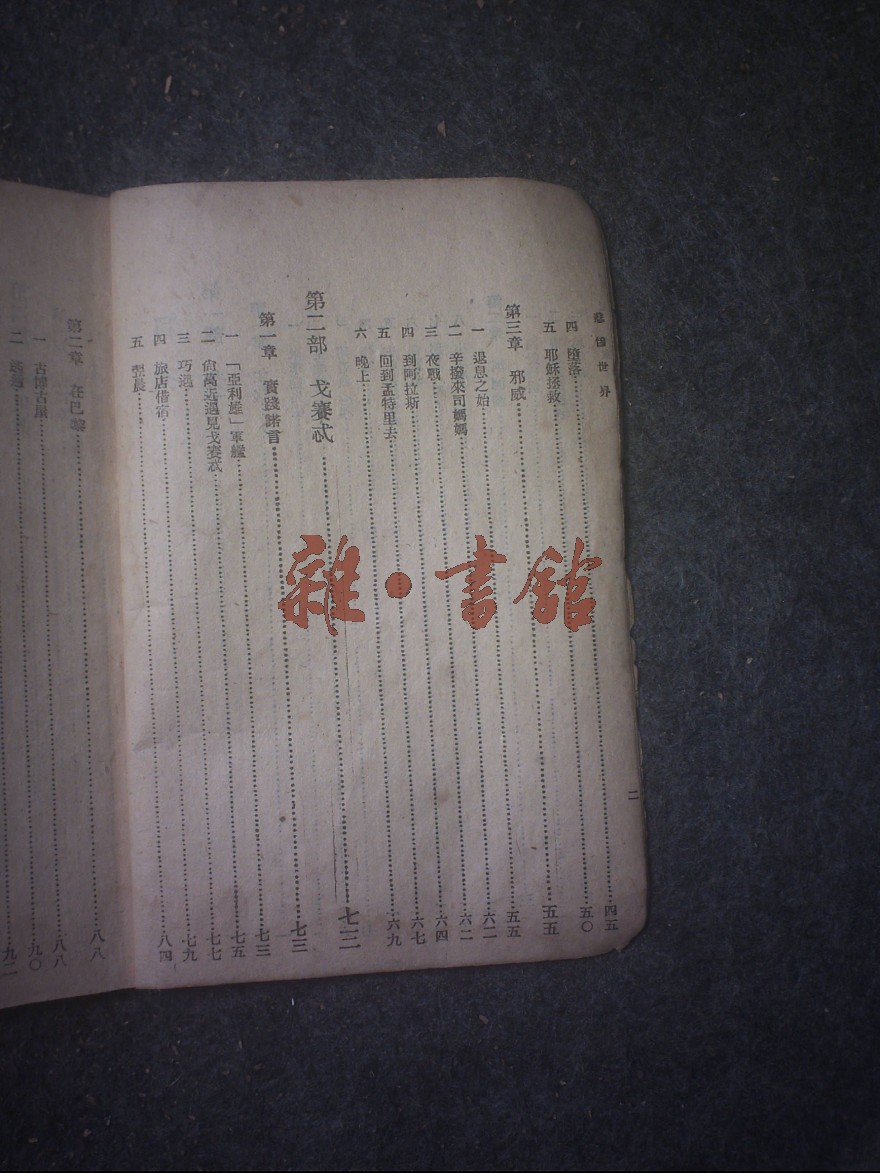 悲慘世界
二
四 墮落 四五
五 耶穌拯救 五〇
第三章 邪威 五五
一 退息之始 五五
二 辛撥來司媽媽 六二
三 夜戰 六二
四 到阿拉斯 六四
五 回到孟特里去 六七
六 晚上 六九
第二部 戈賽忒 七三
第一章 實踐諾言 七三
一 「亞利雄」軍艦 七三
二 尙萬近遇見戈賽忒 七五
三 巧遇 七七
四 旅店借宿 七九
五 翌晨 八四
第二章 在巴黎 八八
一 古博古屋 八八
二 九〇
九二
雜·書館